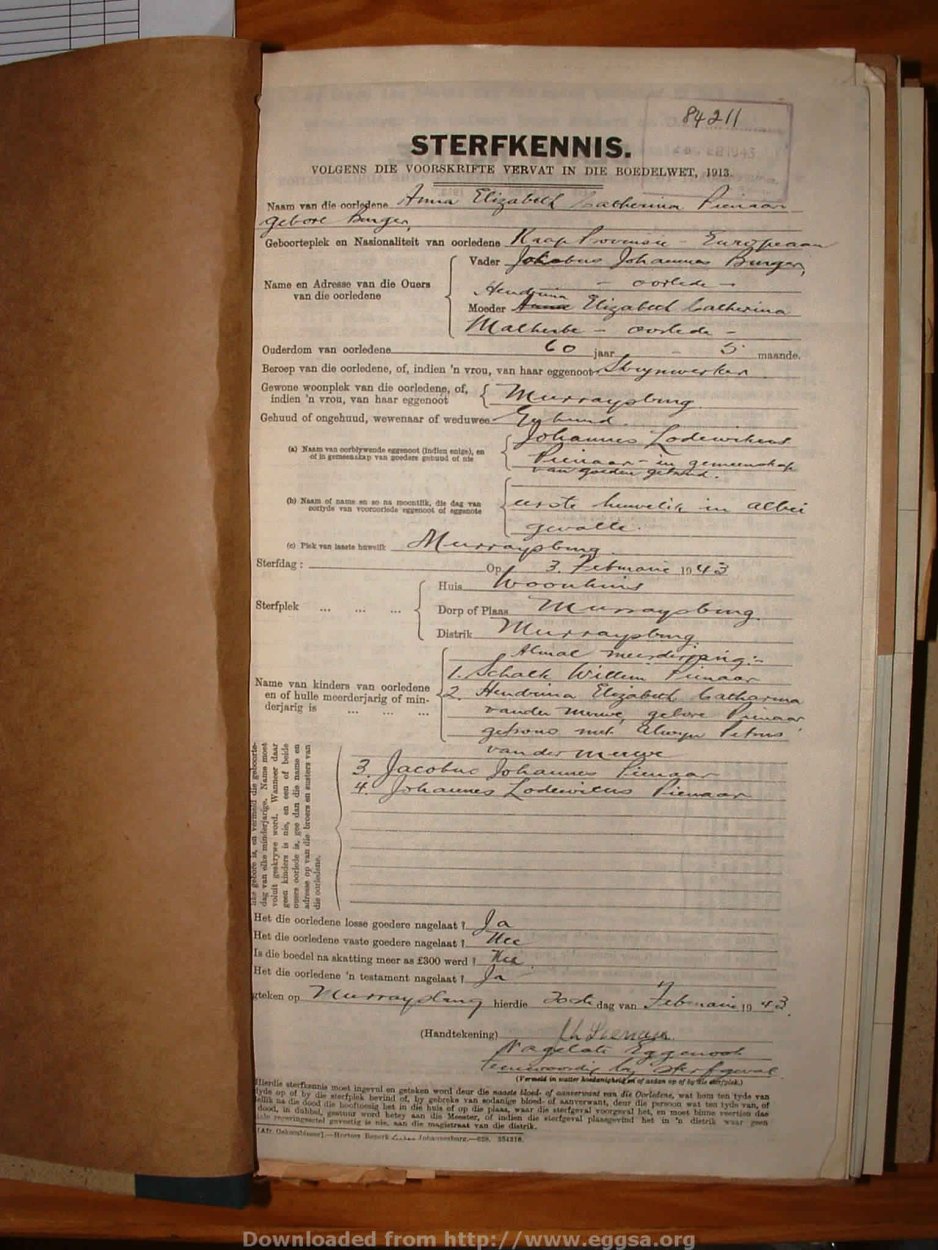 84211
STERFKENNIS.
VOLGENS DIE VOORSKRIFTE VERVAT IN DIE BOEDELWET, 1913.
Naam van die oorledene Anna Elizabeth Catherina Pienaar
gebore Burger
Geboorteplek en Nasionaliteit van oorledene Kaap Provinsie - Europeaan
Name en Adresse van die Ouers van die oorledene
Vader Jakobus Johannes Burger,
- oorlede -
Hendrina
Moeder Elizabeth Catherina
Malherbe - oorlede -
Ouderdom van oorledene 60 jaar - 5 maande.
Beroep van die oorledene, of, indien 'n vrou, van haar eggenoot Skrynwerker
Gewone woonplek van die oorledene, of, indien 'n vrou, van haar eggenoot Murraysburg
Gehuud of ongehuud, wewenaar of weduwee Gehuud.
(a) Naam van oorblywende eggenoot (indien enige), en of in gemeenskap van goedere gehuud of nie
Johannes Lodewikus
Pienaar - in gemeenskap
van goedere getroud.
(b) Naam of name en so na moontlik, die dag van oorlyde van vooroorlede eggenoot of eggenote
eerste huwelik in albei
gevalle.
(c) Plek van laaste huwelik Murraysburg.
Sterfdag : Op 3 Februarie 1943
Sterfplek ... ... ...
Huis Woonhuis
Dorp of Plaas Murraysburg
Distrik Murraysburg.
Name van kinders van oorledene en of hulle meerderjarig of minderjarig is ... ... ...
Almal meerderjarig:-
1. Schalk Willem Pienaar
2. Hendrina Elizabeth Catharina
van der Merwe, gebore Pienaar
getroud met Alwyn Petrus
van der Merwe
3. Jacobus Johannes Pienaar
4. Johannes Lodewikus Pienaar
gebore is, en vermeld die geboorte-
dag van elke minderjarige. Name moet
voluit geskrywe word. Wanneer daar
geen kinders is nie, en een of beide
ouers oorlede is, gee dan die name en
adresse op van die broers en susters van
die oorledene.
Het die oorledene losse goedere nagelaat ? Ja
Het die oorledene vaste goedere nagelaat ? Nee
Is die boedel na skatting meer as £300 werd ? Nee
Het die oorledene 'n testament nagelaat ? Ja
geteken op Murraysburg hierdie 20ste dag van Februarie 1943
(Handtekening)
Nagelate Eggenoot
Teenwoordig by sterfgeval
(Vermeld in watter hoedanigheid en of aldan op of by die sterfplek.)
Hierdie sterfkennis moet ingevul en geteken word deur die naaste bloed- of aanverwant van die Oorledene, wat hom ten tyde van
dood, in dubbel, gestuur word hetsy aan die Meester, of indien die sterfgeval plaasgevind het in 'n distrik waar geen
aan die magistraat van die distrik.
Downloaded from http://www.eggsa.org